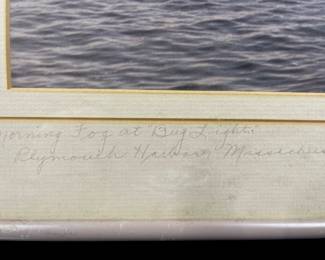 Morning Fog at "Bug Light"
Plymouth Harbor, Massachus